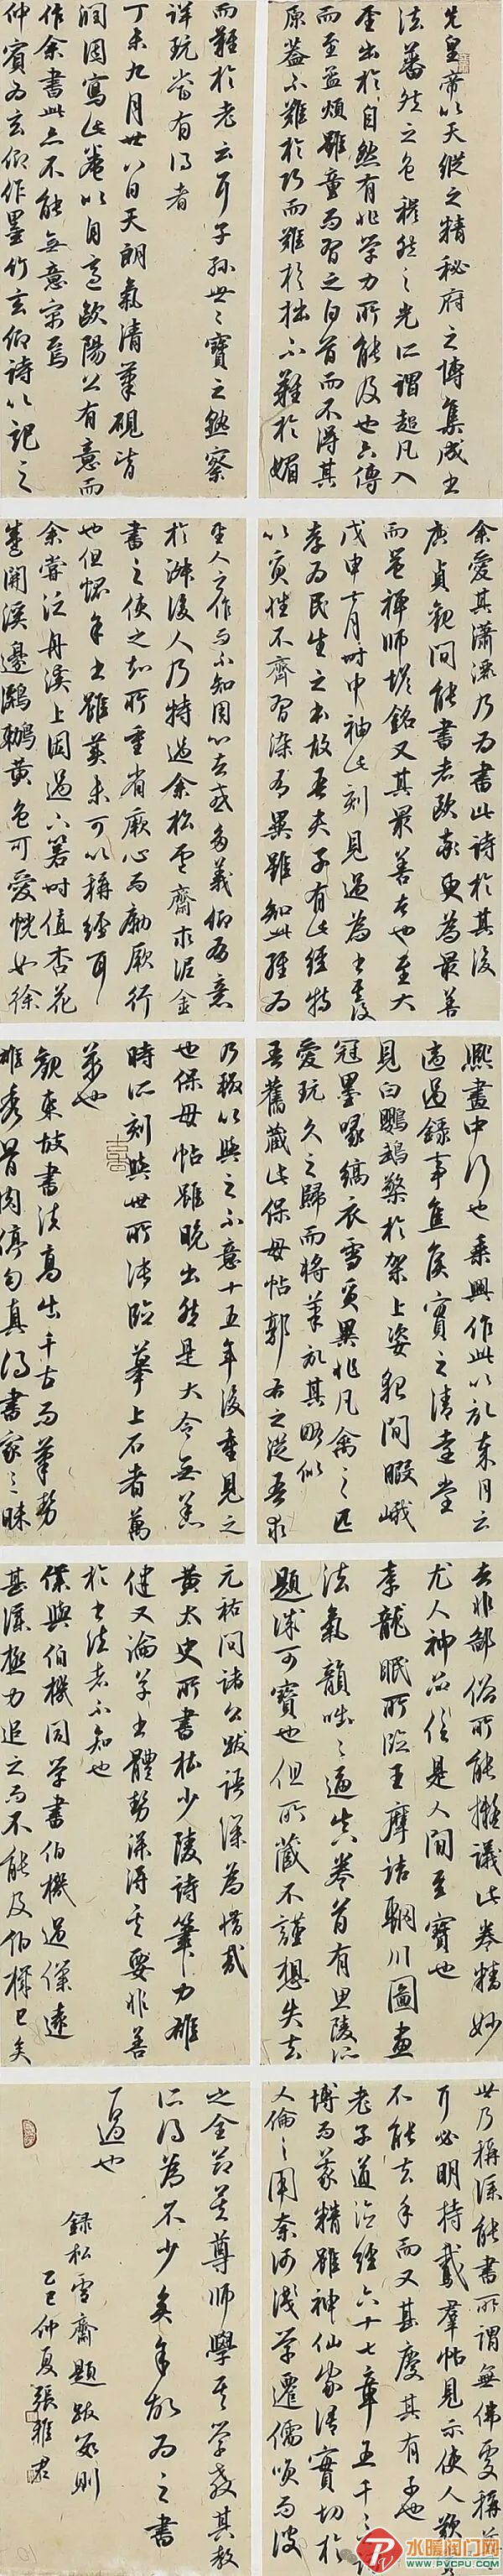 先皇帝以天縱之精秘府之博集成書
法蕃然之色穆然之光所謂超凡入
聖出於自然有非学力所能及也六傳
而至孟頫雖童而習之白首而不得其
原蓋不難於巧而難於拙不難於媚
而難於老云耳子孫世之寶之熟察
詳玩當有得者
丁未九月廿八日天朗氣清筆硯皆
潤因寫此卷以自適歐陽公有意而
作余書此亦不能無意焉
仲賓為玄卿作墨竹玄卿詩以記之
余愛其瀟灑乃為書此詩於其後
唐貞觀間能書者歐率更為最善
而邕禪師塔銘又其最善者也至大
戊申十月時中袖此刻見過為書其後
孝為民生之本故吾夫子有此經特
以實性不齊習染有異雖知此經為
聖人之作而不知因心者或多義卿有意
於淑後人乃特過余松雪齋求泥金
書之使之知所重省厥心而勵厥行
也但愧手書雖英未可以稱經耳
余嘗泛舟溪上因過下箬時值杏花
盛開溪邊鸂鶒黃色可愛恍如徐
熙畫中行也乘興作此以於東月云
適過錄事焦侯實之清堂堂
見白鸚鵡檠於架上姿貌閒暇峨
冠墨喙縞衣雪質異非凡禽之匹
愛玩久之歸而將筆於其略似
吾舊藏此保母帖郭右之從吾求
乃輟以與之不意十五年後重見之
也保母帖雖晚出然是大令無恙
時所刻與世所傳臨摹上石者萬
萬也
觀東坡書法高出千古而筆勢
雄秀骨肉停勻真得書家之昧
者非鄙俗所能擬議此卷精妙
尤人神品信是人間至寶也
李龍眠所臨王摩詰輞川圖畫
法氣韻咄咄逼真卷首有思陵所
題誠可寶也但所藏不謹想失去
元祐間諸公跋語深為惜哉
黃太史所書杜少陵詩筆力雄
健又論草書體勢深得其要非善
於書法者不知也
僕與伯機同學書伯機過僕遠
甚僕極力追之而不能及伯機已矣
世乃稱僕能書所謂無佛處稱尊
耳必明持戴羣帖見示使人歎
不能去手而又甚慶其有子也
老子道德經六十七章五千言
博而義精雖神仙家清實切於
人倫之用奈何淺学遷儒唤而波
之全節其尊師學其学嘉其教
所得為不少矣年故為之書
一過也
録松雪齋題跋數則
乙巳仲夏張雅君
水暖阀门网
WWW.PVCPU.COM